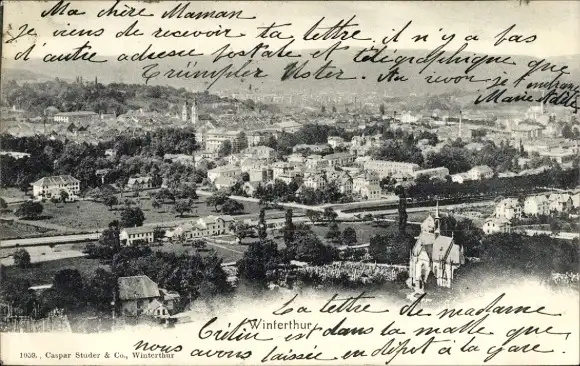 Ma chère Maman
je viens de recevoir ta lettre. il n'y a pas
d'autre adresse postale et télégraphique que
Crümpler Uster. Au revoir je
Marie Adèle
Winterthur
La lettre de Madame
Crétin est dans la malle que
nous avons laissée en dépôt à la gare.
1059., Caspar Studer & Co., Winterthur